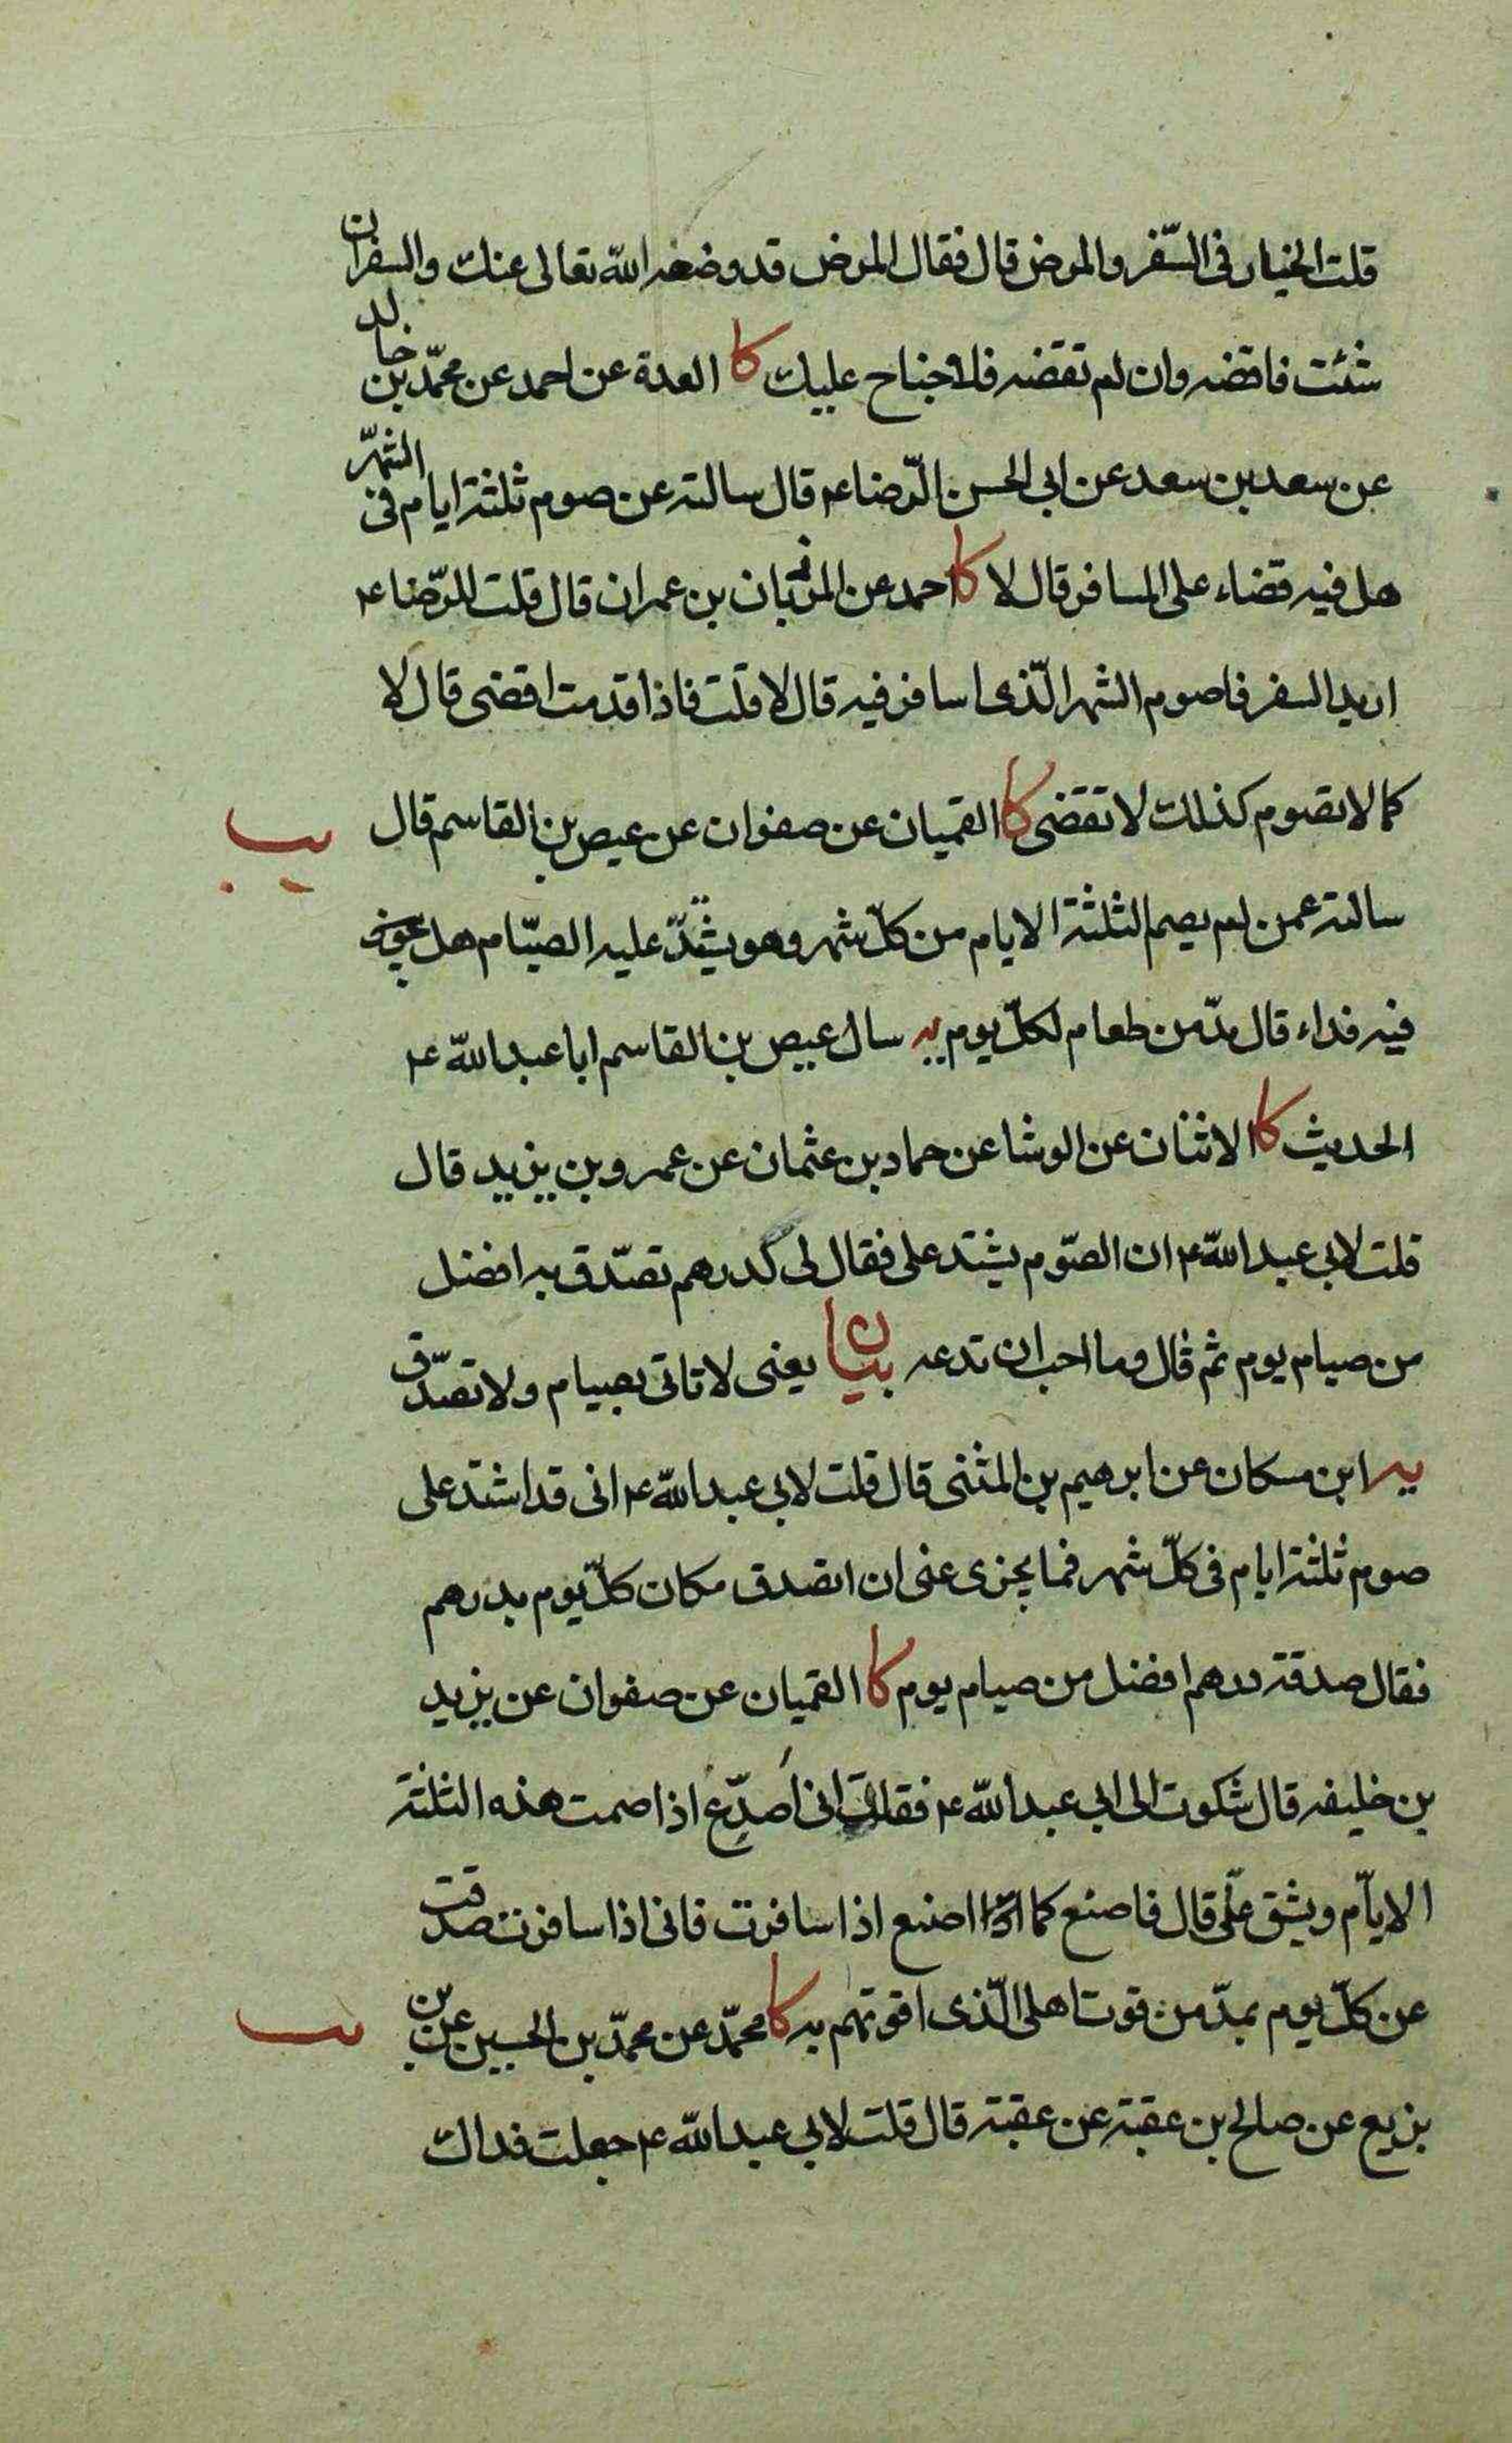 قلت الخيار فى السّفر والمرض قال فقال المرض قد وضعه الله تعالى عنك والسفر ان
شئت فاقضه وان لم تقضه فلا جناح عليك كا العدة عن احمد عن محمّد بن خالد
عن سعد بن سعد عن ابى الحسن الرّضا ع قال سالته عن صوم ثلثة ايام فى الشهر
هل فيه قضاء على المسافر قال لا كا احمد عن المرزبان بن عمران قال قلت للرّضا ع
اريد السفر فاصوم الشهر الّذى اسافر فيه قال لا قلت فاذا قدمت اقضى قال لا
كما لا تصوم كذلك لا تقضى كا القميان عن صفوان عن عيص بن القاسم قال
يب
سالته عمن لم يصم الثلثة الايام من كلّ شهر وهو يشتدّ عليه الصيّام هل
فيه فداء قال مدّ من طعام لكلّ يوم يه سال عيص بن القاسم ابا عبد الله ع
الحديث كا الاثنان عن الوشا عن حماد بن عثمان عن عمرو بن يزيد قال
قلت لابى عبد الله ع ان الصّوم يشتد على فقال لى لدرهم تصّدق به افضل
من صيام يوم ثم قال وما احب ان تدعه بيان يعنى لا تاتى بصيام ولا تصّدق
يه ابن مسكان عن ابرهيم بن المثنى قال قلت لابى عبد الله ع انى قد اشتد على
صوم ثلثة ايام فى كلّ شهر فما يجزى عنى ان اتصدق مكان كلّ يوم بدرهم
فقال صدقة درهم افضل من صيام يوم كا القميان عن صفوان عن يزيد
بن خليفه قال شكوت الى ابى عبد الله ع فقلت انى اُصَدِّعُ اذا صمت هذه الثلثة
الايّام ويشق علّى قال فاصنع كما اصنع اذا سافرت فانى اذا سافرت صدقت
عن كلّ يوم بمدّ من قوت اهلى الّذى اقوتهم به كا محمّد عن محمّد بن الحسين عن بن
يب
بزيع عن صالح بن عقبة عن عقبة قال قلت لابى عبد الله ع جعلت فداك